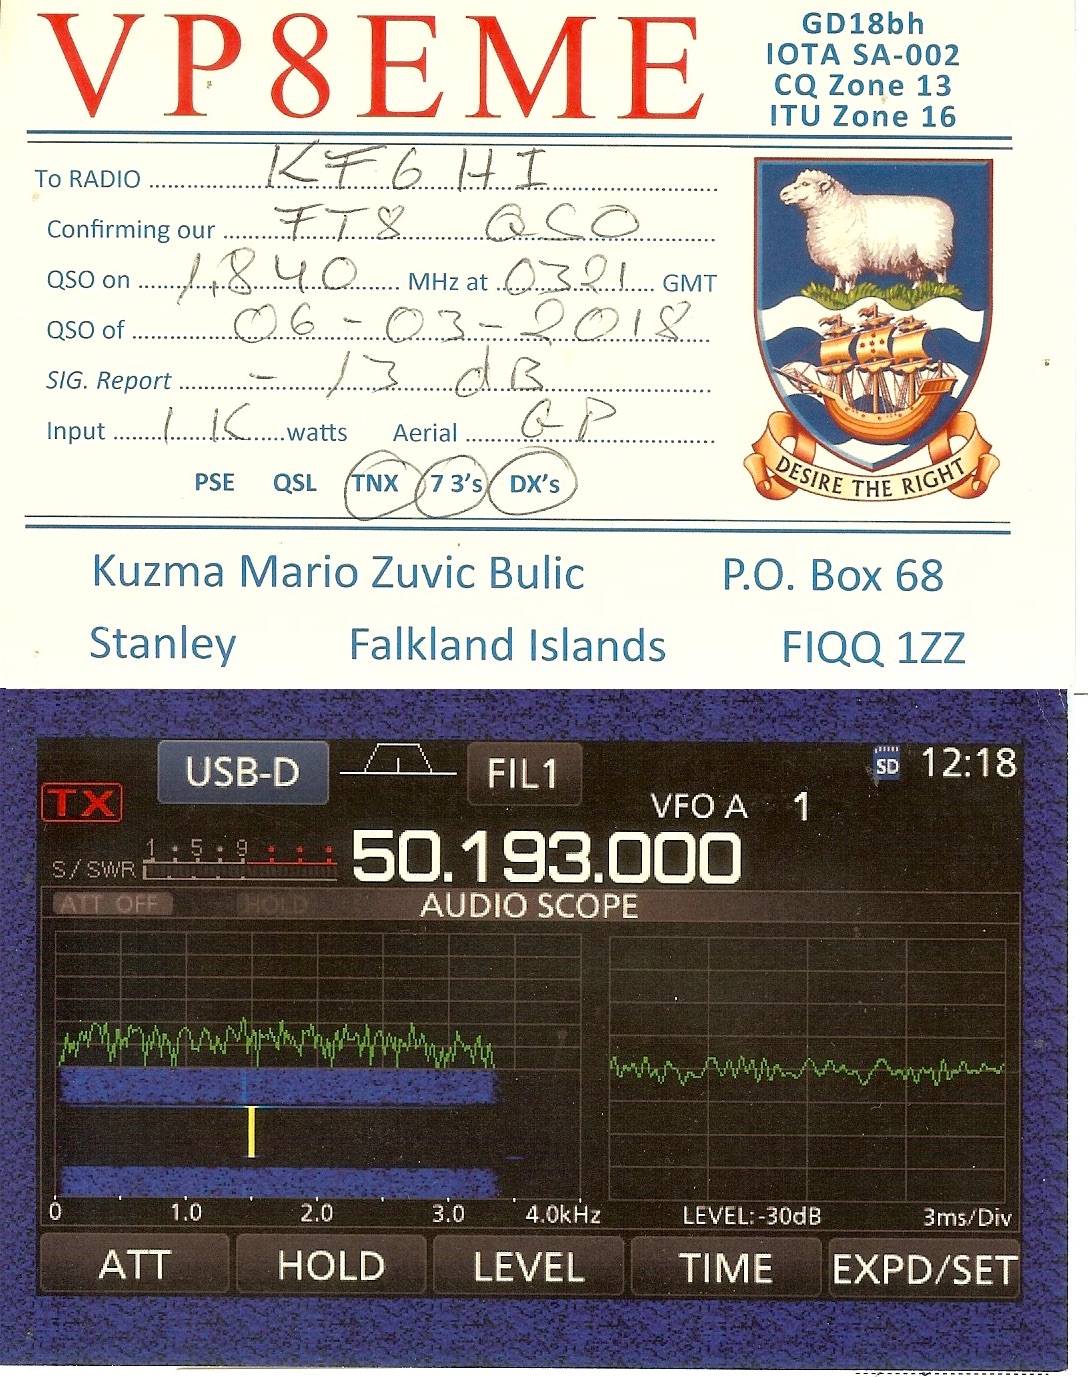 VP8EME
GD18bh
IOTA SA-002
CQ Zone 13
ITU Zone 16
To RADIO KF6HI
Confirming our FT8 QSO
QSO on 1,840 MHz at 0321 GMT
QSO of 06-03-2018
SIG. Report -13 dB
Input 1K watts Aerial GP
PSE QSL TNX 7 3's DX's
DESIRE THE RIGHT
Kuzma Mario Zuvic Bulic P.O. Box 68
Stanley Falkland Islands FIQQ 1ZZ
USB-D FIL1 SD 12:18
TX VFO A 1
1 • 5 • 9 • • •
S/SWR 50.193.000
ATT OFF HOLD AUDIO SCOPE
0 1.0 2.0 3.0 4.0kHz LEVEL:-30dB 3ms/Div
ATT HOLD LEVEL TIME EXPD/SET